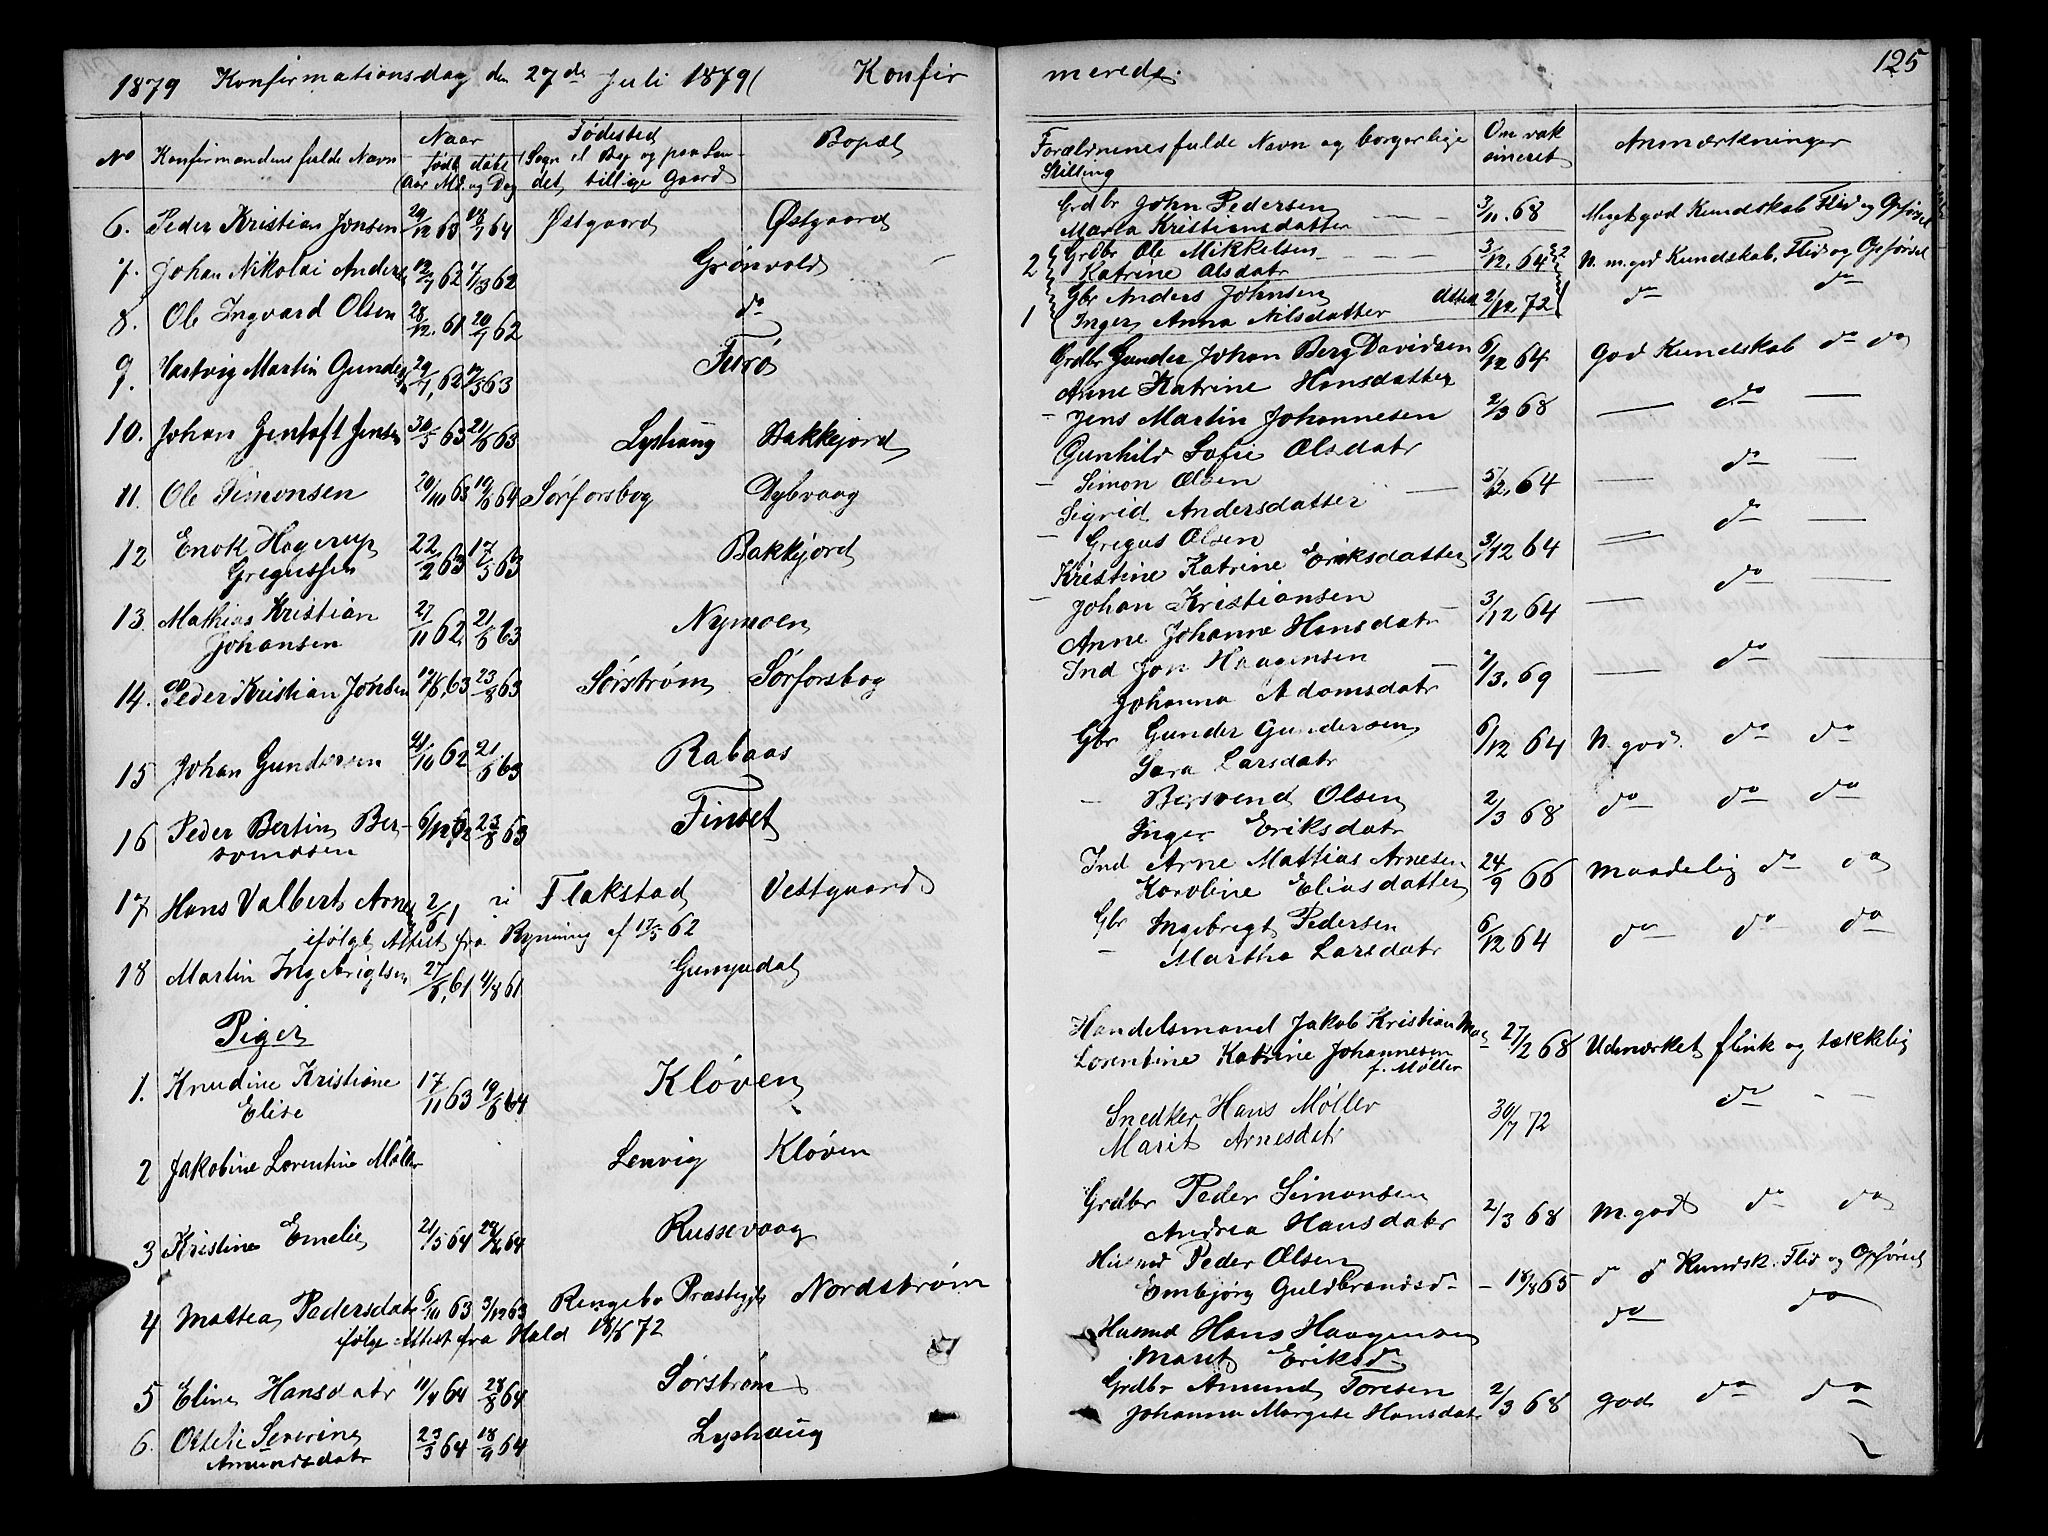 1879 Konfirmationsdag den 27de Juli 1879 Konfir
No Konfirmandens fulde Navn Naar Fødested Bopæl
født døbt Sogn el. By og paa Lan-
Aar Md. og Dag det, tillige Gaard
6. Peder Kristian Jonsen 29/12 63 18/7 64 Østgaard Østgaard
7. Johan Nikolai Anders 12/7 62 7/3 62 Grønvold
8. Ole Ingvard Olsen 28/12. 61 20/7 62 do
9. Hartvig Martin Gunders 29/7, 62 17/5 63 Furø
10. Johan Gentoft Jensen 30/5 63 21/6 63 Lyshaug Bakkejord
11. Ole Simonsen 20/10 63 19/6 64 Sørforsbog Dybvaag
12 Enok Hagerup 22/2 63 17/5 63 Bakkejord
Gregussen
13. Mathias Kristian 27/11 62 21/6 63 Nymoen
Johansen
14. Peder Kristian Jonsen 17/6, 63 23/8 63 Sørstrøm Sørforsbog
15 Johan Gundersen 21/10 62 21/6 63 Rabaas
16 Peder Bertin Ber- 6/12 62 23/8 63 Finset
svendsen
17. Hans Valbert Arnes 2/61 Flakstad Vestgaard
ifølge Attest fra Ryning af 17/5 62
18 Martin Ingebrigtsen 27/6, 61 4/8 61 Gumpedal
Piger
1. Knudine Kristine 17/11 63 19/6 64 Kløven
Elise
2 Jakobine Lorentine Møller Lenvig Kløven
3 Kristine Emelie 21/5 64 64 Russevaag
4 Mattea Pedersdatr 6/11 63 3/12 63 Ringebo Præstegjt Nordstrøm
ifølge Attest fra Hald 18/6 72
5 Eline Hansdatr 11/4 64 28/8 64 Sørstrøm
6. Ottelie Severine 23/3 64 18/9 64 Lyshaug
Amundsdatr
merede. 125
Forældrenes fulde Navn og borgerlige Om vak Anmærkninger
Stilling cineret
Grdbr John Pedersen 3/11. 68 Meget god Kundskab Flid og Opførsel
Marta Kristiansdatter
2 Grdbr Ole Mikkelsen 3/12. 64 2 N. m. god Kundskab, Flid og Opførsel
Katrine Olsdatr
1 Gbr Anders Johnsen Attest 2/12. 72 do do
Inger Anna Nilsdatter
Grdbr Gunder Johan Berg Davidsen 6/12 64 God Kundskab do do
Anne Katrine Hansdatter
- Jens Martin Johannesen 2/3 68 do
Gunhild Sofie Olsdatr
- Simon Olsen 5/2. 64 do
Sigrid Andersdatter
- Gregus Olsen 3/12 64 do
Kristine Katrine Eriksdatter
- Johan Kristiansen 3/12 64 do
Anne Johanne Hansdatr
Ind Jon Haagensen 7/3. 69 do
Johanna Adamsdatr
Gbr Gunder Gundersen 6/12 64 N. god. do do
Sara Larsdatr
- Bersvend Olsen 2/3 68 do do do
Inger Eriksdatr
Ind Arne Mattias Arnesen 24/9 66 Maadelig do do
Karoline Eliasdatter
Gbr Ingebrigt Pedersen 6/12 64 do do do
- Martha Larsdatr
Handelsmand Jakob Kristian 27/2 68 Udmærket flink og tækkelig
Lorentine Katrine Johannesen
f. Møller
Snedker Hans Møller 30/7 72 do
Marit Arnesdatr
Grdbr Peder Simonsen 2/3 68 M. god do do
Andrea Hansdatr
Husmd Peder Olsen
Embjørg Guldbrandsd - 18/8 65 do do Kundsk. Flid og Opførsel
Husmd Hans Haagensen do do
Maret Eriksd
Grdbr Amund Toresen 2/3 68 god do do
Johanna Margete Hansdatr